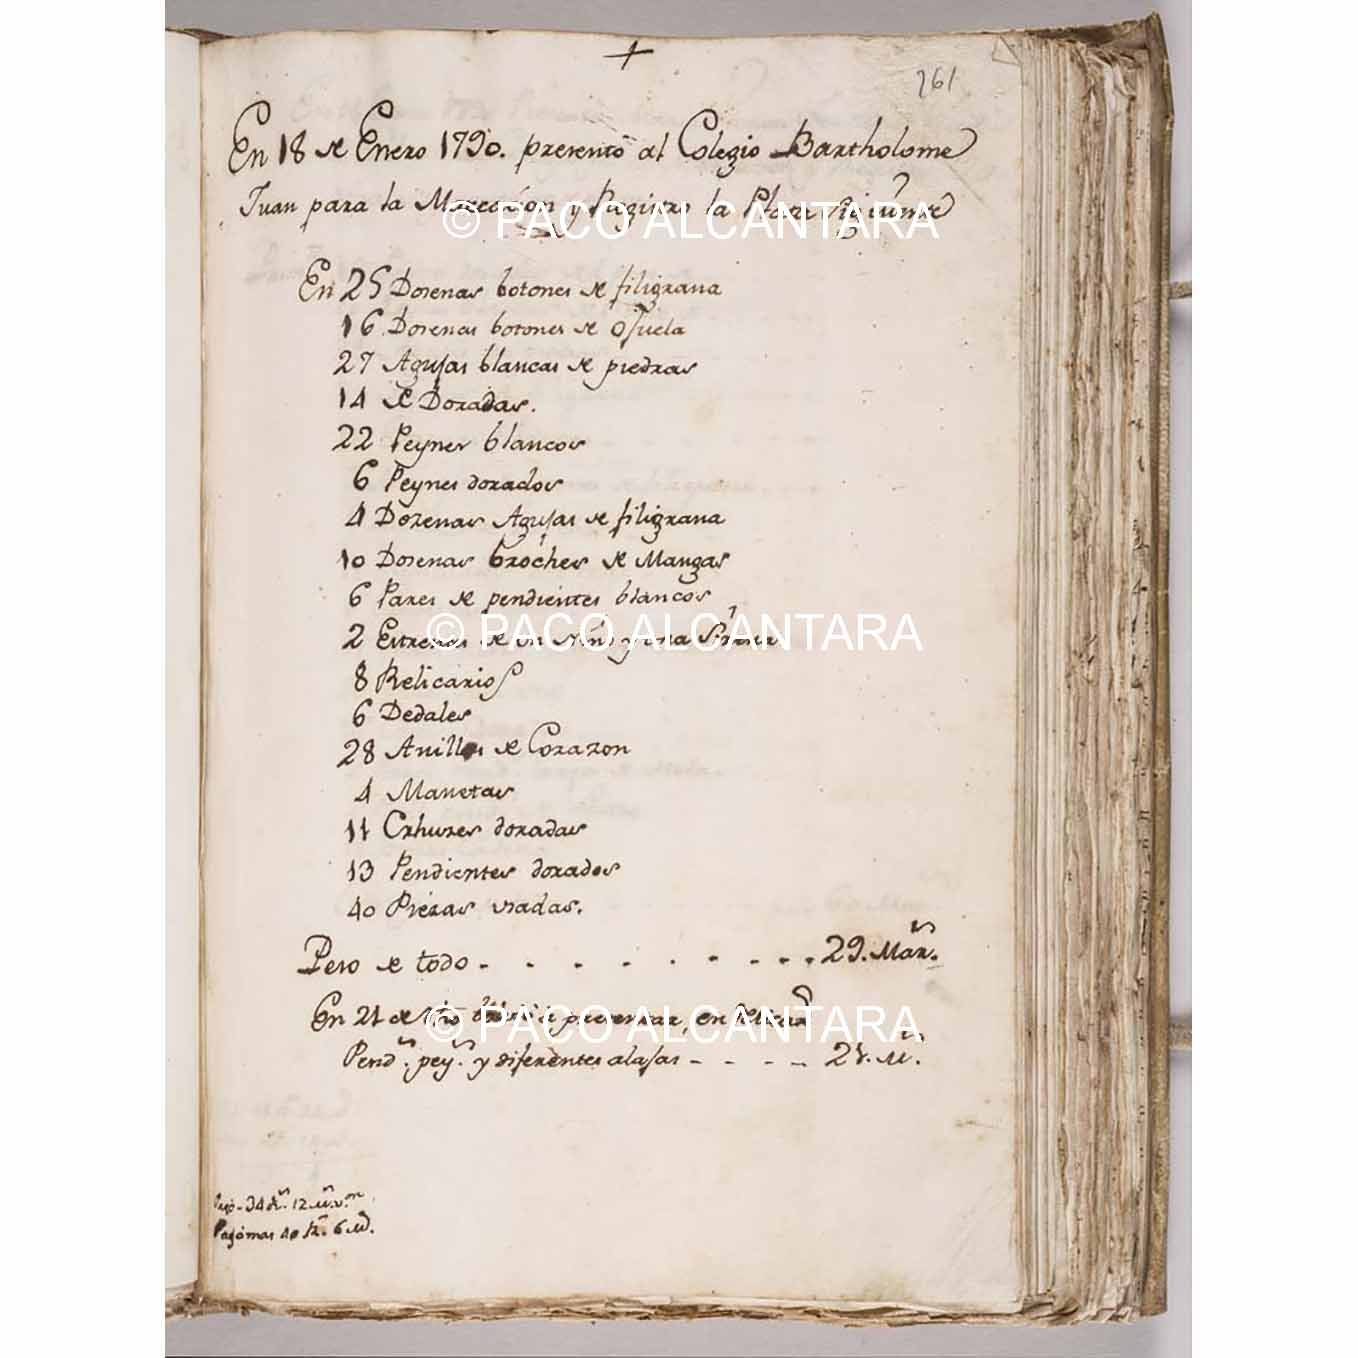 261
En 18 de Enero 1790. presentó al Colegio Bartholome
Juan para la Marcacion y Registro la Plata Siguiente
© PACO ALCANTARA
En 25 Dosenas botones de filigrana
16 Dosenas botones de ojuela
27 Agujas blancas de piedras
14 de Doradas.
22 Peynes blancos
6 Peynes dorados
4 Dozenas Agujas de filigrana
10 Dosenas broches de Mangas
6 Pares de pendientes blancos
2 de un Niño y una Sirena
© PACO ALCANTARA
8 Relicarios
6 Dedales
28 Anillos de Corazon
4 Manetas
11 doradas
13 Pendientes dorados
40 Piezas usadas.
Peso de todo - - - - - - - - - 29. Mar.s
En 21 de presentar, en
© PACO ALCANTARA
Pend.s pey.s y diferentes alajas - - - - M.s
Pagó - 34 R.s 12 m.s v.on
Pagó mas 40 R.s 6 m.